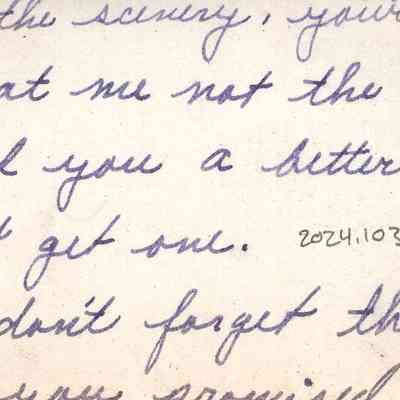 the scenery, your
at me not the
you a better
get one. 2024.103
don't forget th
you promised